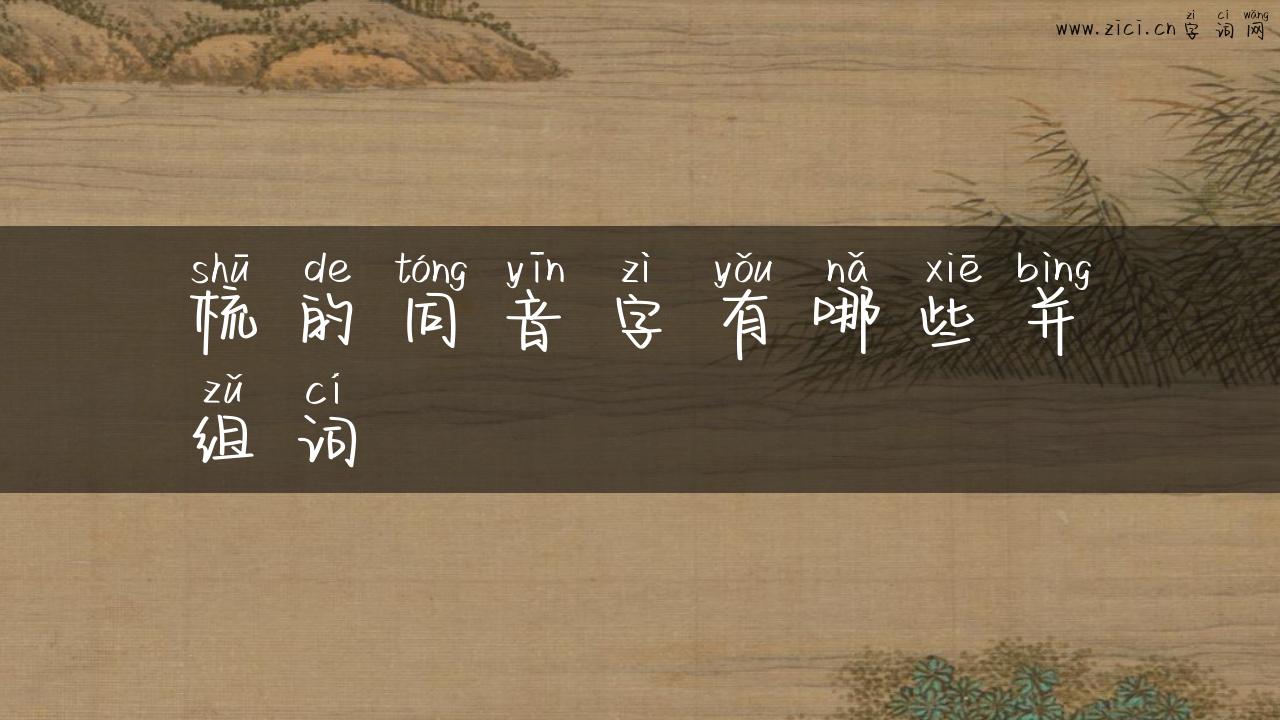 zì cí wǎng
www.zici.cn 字 词 网
shū de tóng yīn zì yǒu nǎ xiē bìng
梳 的 同 音 字 有 哪 些 并
zǔ cí
组 词